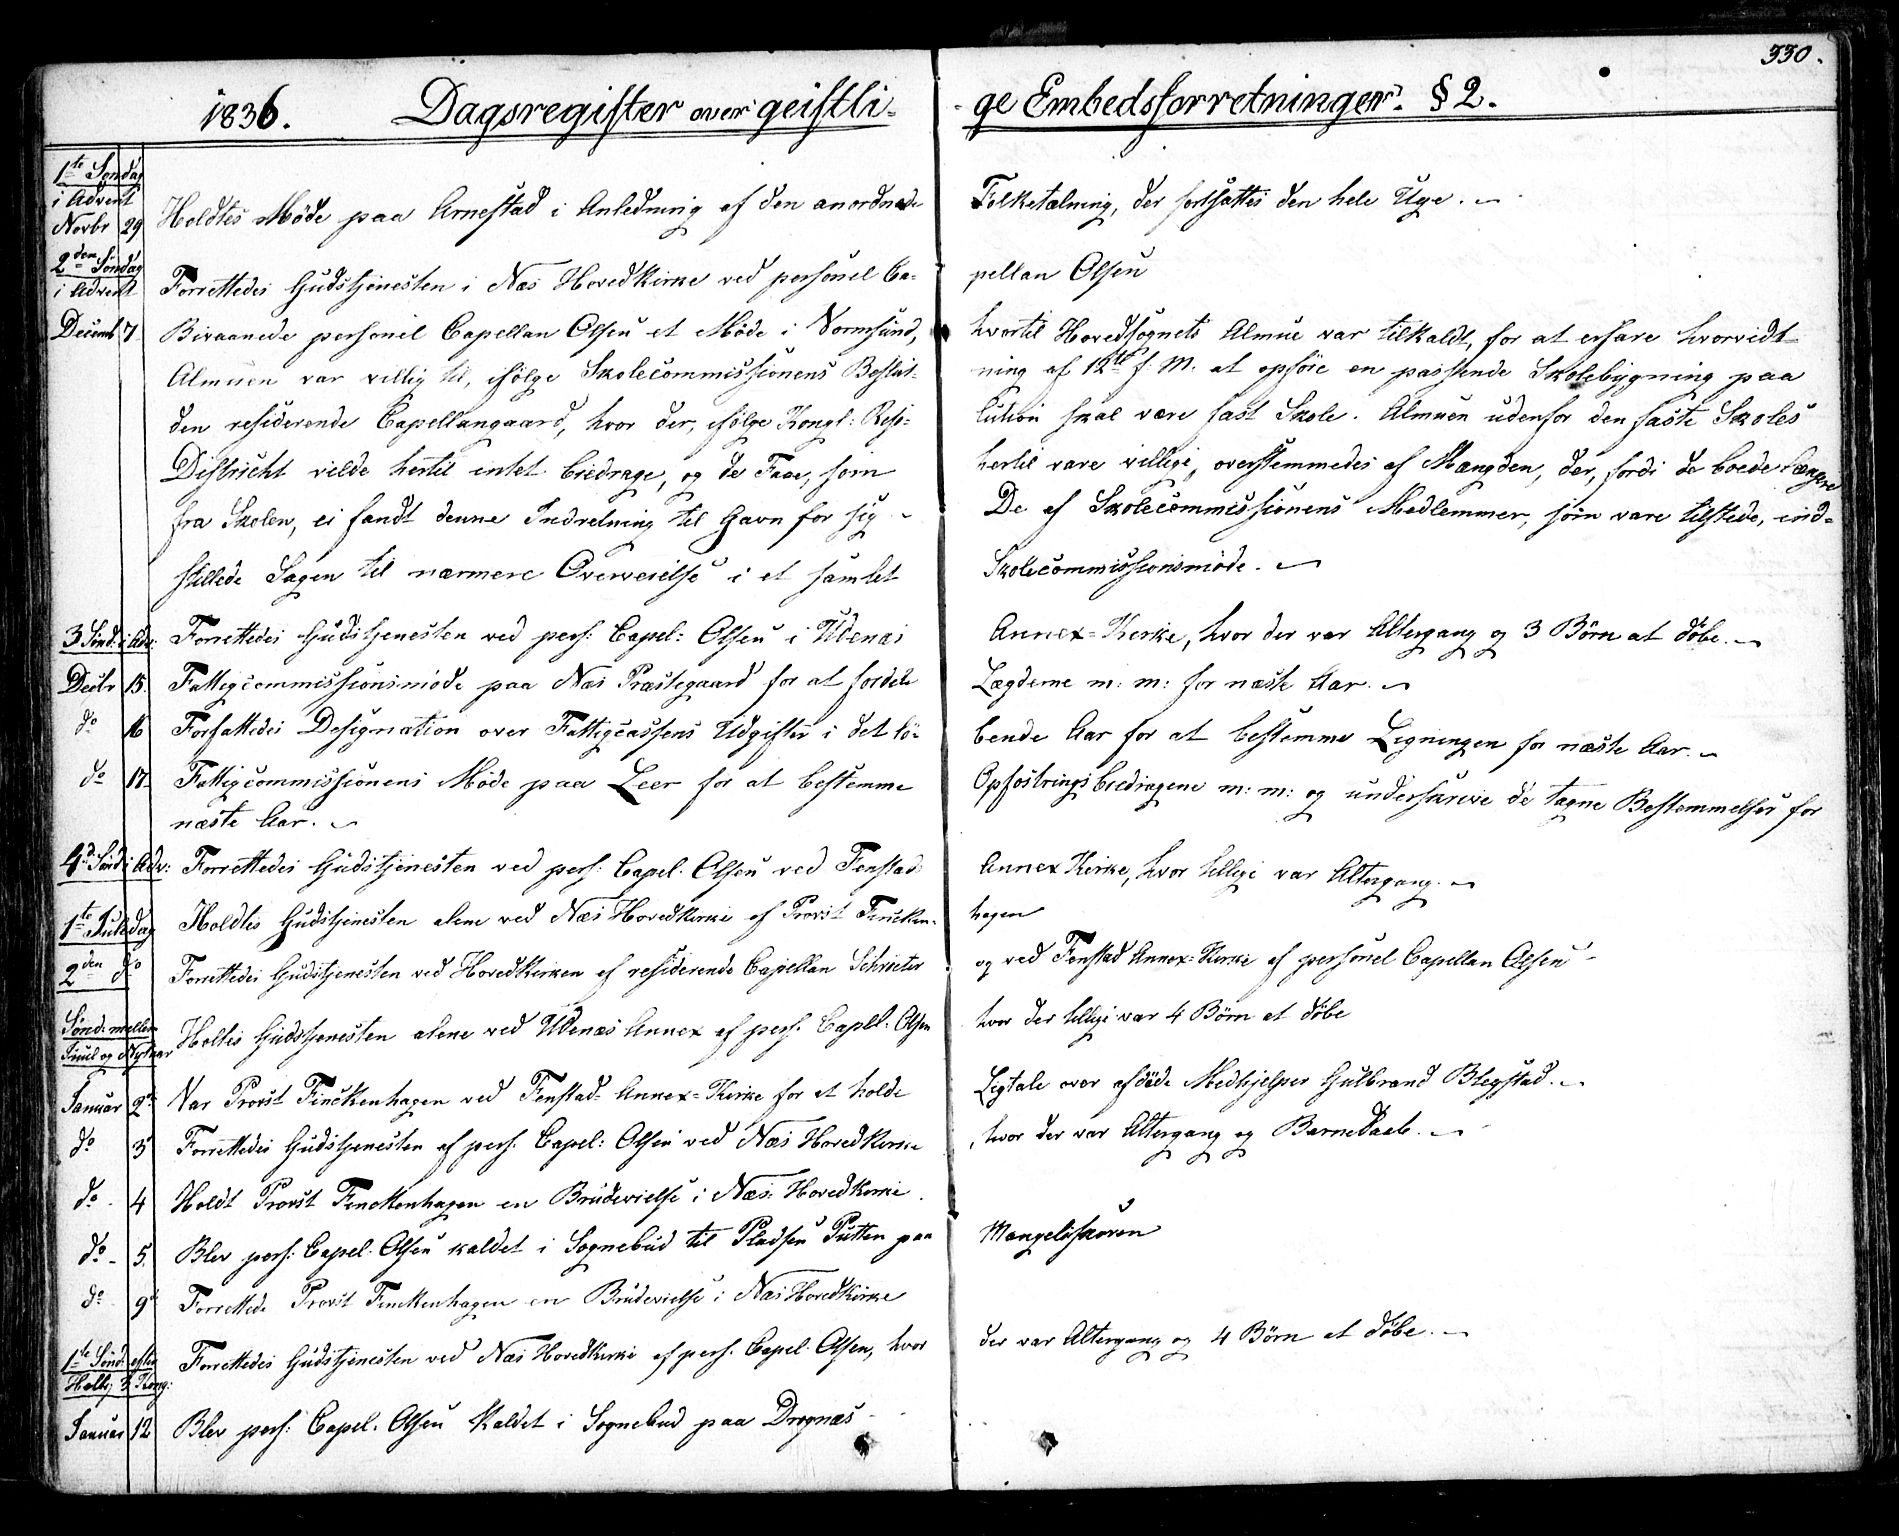 330.
1836. Dagsregister over geistli-
ge Embedsforretninger. § 2.
1te Søndag
i Advent
Novbr 29 Holdtes Møde paa Arnestad i Anledning af den anordnede
Folketælning, der fortsattes den hele Uge.
2den Søndag
i Advent Forrettedes Gudstjenesten i Næs Hovedkirke ved personel Ca-
pellan Olsen
Decemb 7 Bivaanede personel Capellan Olsen et Møde i Vormsund,
hvortil Hovedsognets Almue var tilkaldt, for at erfare hvorvidt
Almuen var villig til, ifølge Skolecommissionens Beslut-
ning af 12te f. M. at opføre en passende Skolebygning paa
den residerende Capellangaard, hvor der, ifølge Kongl: Reso-
lution skal være fast Skole. Almuen udenfor den faste Skoles
District vilde hertil intet bidrage, og de Faae, som
hertil vare villige, overstemmedes af Mængden, der, fordi de boede længere
fra Skolen, ei fandt denne Indretning til Gavn for sig -
De af Skolecommissionens Medlemmer, som vare tilstede, ind-
stillede Sagen til nærmere Overveielse i et samlet
Skolecommissionsmøde.
3 Sønd: i Adv: Forrettedes Gudstjenesten ved pers: Capel: Olsen i Udenæs
Annex-Kirke, hvor der var Altergang og 3 Børn at døbe.
Decbr 15. Fattigcommissionsmøde paa Næs Præstegaard for at fordele
Lægderne m: m: for næste Aar.
do 16 Forfattedes Designation over Fattigcassens Udgifter i det lø-
bende Aar for at bestemme Ligningen for næste Aar.
do 17 Fattigcommissionens Møde paa Leer for at bestemme
Opfostringsbidragene m: m: og underskrive de tagne Bestemmelser for
næste Aar.
4d: Sønd i Adv: Forrettedes Gudstjenesten ved pers: Capel. Olsen ved Fenstad
Annex Kirke, hvor tillige var Altergang.
1te Juledag Holdtes Gudstjenesten alene ved Næs Hovedkirke af Provst Fincken-
hagen
2den do Forrettedes Gudstjenesten ved Hovedkirken af residerende Capellan Schrøter
og ved Fenstad Annex-Kirke af personel Capellan Olsen -
Sønd: mellem
Juul og Nytaar Holtes Gudstjenesten alene ved Udenæs Annex af pers. Capll: Olsen
hvor der tillige var 4 Børn at døbe
Januar 2de Var Provst Finckenhagen ved Fenstad Annex-Kirke for at holde
Ligtale over afdøde Medhjelper Gulbrand Blegstad.
do 3 Forrettedes Gudstjenesten af pers. Capel: Olsen ved Næs Hovedkirke
, hvor der var Altergang og Barnedaab.
do - 4 Holdt Provst Finckenhagen en Brudevielse i Næs Hovedkirke.
do - 5. Blev pers: Capel. Olsen kaldet i Sognebud til Pladsen Putten paa
Mangelsskoven
do - 9de Forrettede Provst Finckenhagen en Brudevielse i Næs Hovedkirke
1te Sønd: efter
Hellig 3 Kong: Forrettedes Gudstjenesten ved Næs Hovedkirke af pers. Capel. Olsen, hvor
der var Altergang og 4 Børn at døbe.
Januar 12 Blev pers: Capel. Olsen kaldet i Sognebud paa Drognæs -